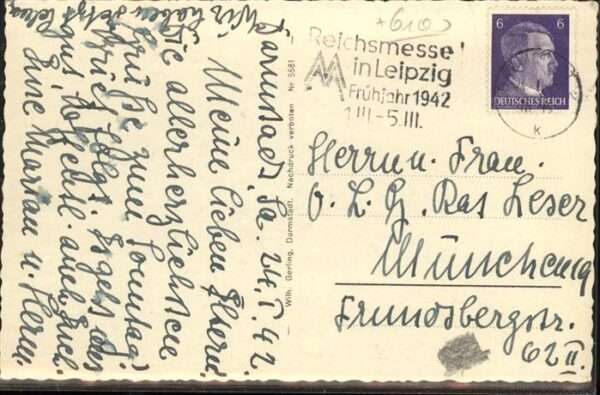 Darmstadt, Sa. 24. I. 42.
Meine lieben Eltern!
Die allerherzlichsten
Grüße zum Sonntag!
Brief folgt. Es geht uns
gut, hoffentl. auch Euch.
Eure Marian u. Herm.
Wir haben jetzt
Wilh. Gerling, Darmstadt. Nachdruck verboten Nr. 5581
+610
Reichsmesse
in Leipzig
Frühjahr 1942
1.III.-5.III.
6 6
DEUTSCHES REICH
k
Herrn u. Frau
O. L. G. Rat Leser
München
Frundsbergstr.
62 II.